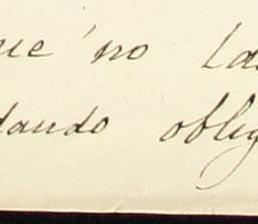 ue no las
dando oblig